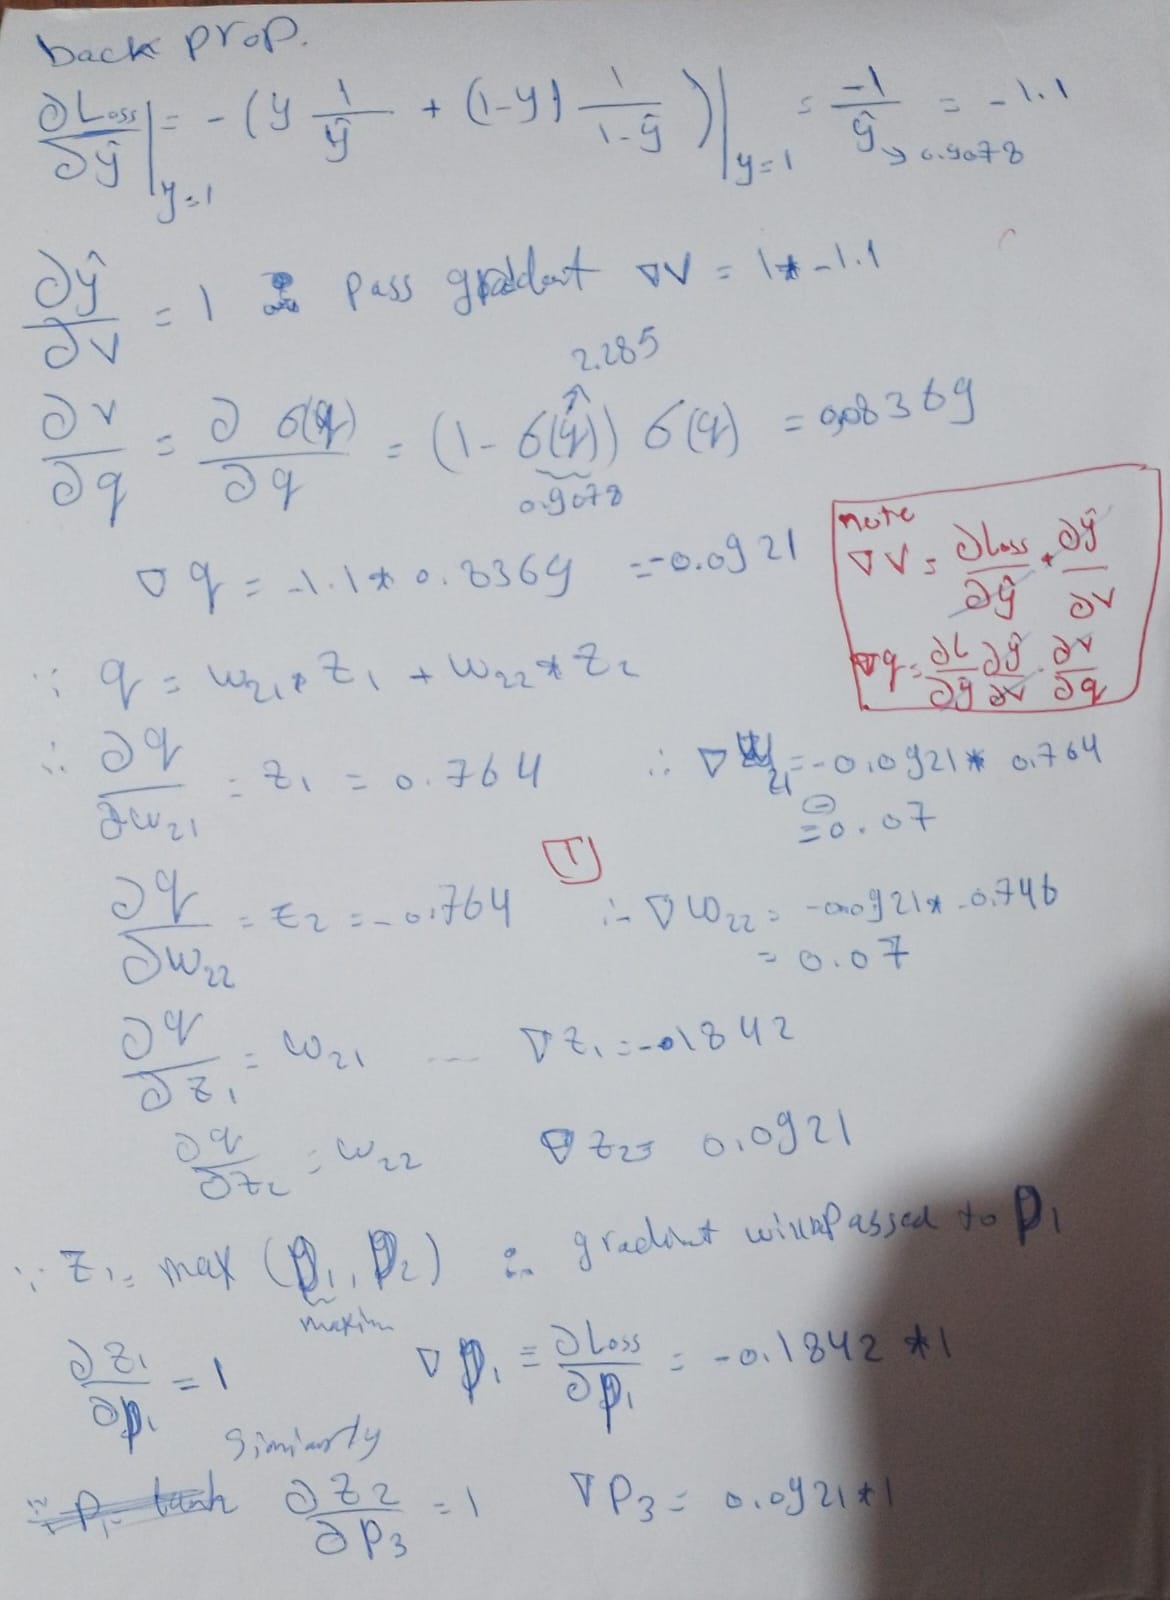 back prop.
∂Loss/∂ŷ |y=1 = -(y 1/ŷ + (1-y) 1/1-ŷ)|y=1 = -1/ŷ = -1.1
→ 0.9078
∂ŷ/∂v = 1 pass ∇v = 1*-1.1
2.285
∂v/∂q = ∂σ(q)/∂q = (1-σ(q))σ(q) = 0.08369
0.9078
∇q = -1.1*0.8369 = -0.0921
note
∇v = ∂Loss/∂ŷ * ∂ŷ/∂v
∇q = ∂L/∂ŷ ∂ŷ/∂v . ∂v/∂q
∵ q = w21*z1 + w22*z2
∴ ∂q/∂w21 = z1 = 0.764 ∴ ∇w21 = -0.0921*0.764
= -0.07
1
∂q/∂w22 = z2 = -0.764 ∴ ∇w22 = -0.0921*-0.746
= 0.07
∂q/∂z1 = w21 --- ∇z1 = -0.1842
∂q/∂z2 = w22 ∇z2 = 0.0921
∵ z1 = max (p1, p2) ∴ passed to p1
∂z1/∂p1 = 1 ∇p1 = ∂Loss/∂p1 = -0.1842*1
∂z2/∂p3 = 1 ∇p3 = 0.0921*1